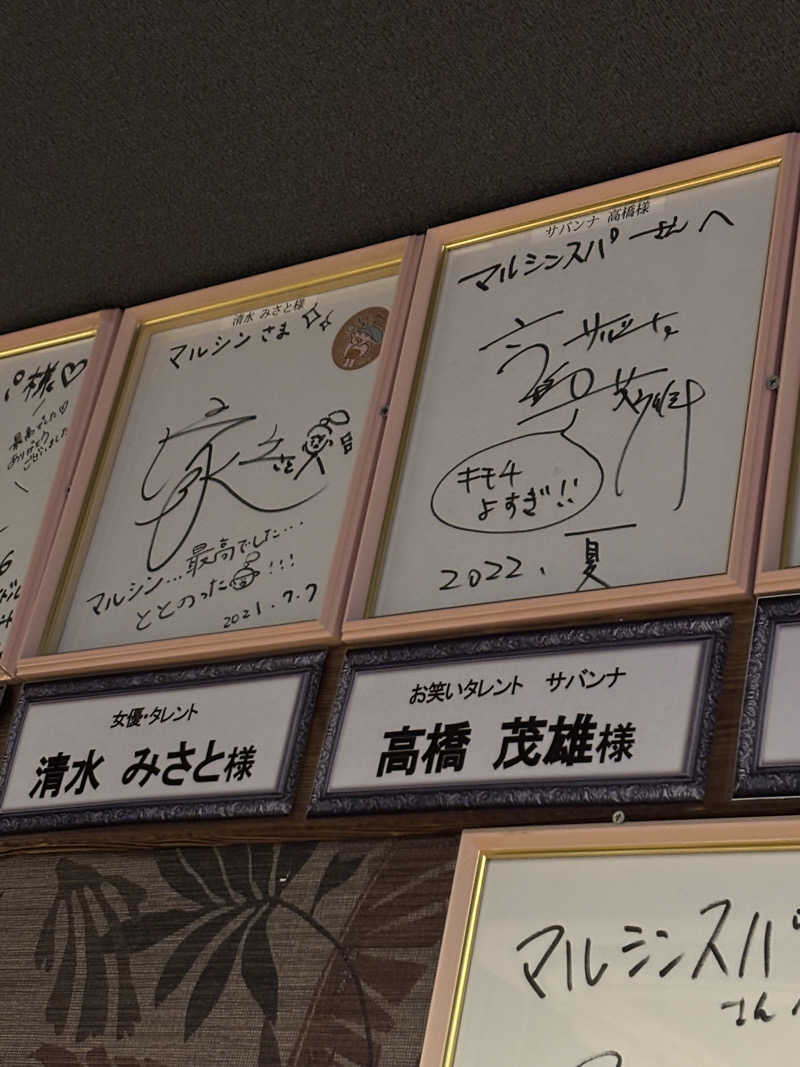 様♡
最高でした♡
ありがとう
ございました
清水 みさと様
マルシン さま
マルシン...最高でした...
ととのった !!!
2021.7.7
サバンナ 高橋様
マルシンスパ さんへ
サバンナ
キモチ
よすぎ!!
2022. 夏
女優・タレント
清水 みさと様
お笑いタレント サバンナ
高橋 茂雄様
マルシンスパ
さんへ